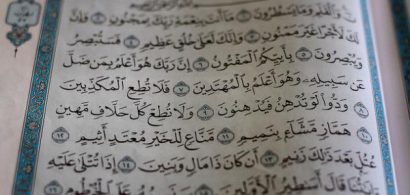 نٓ وَالْقَلَمِ وَمَا يَسْطُرُونَ ۝١ مَا أَنْتَ بِنِعْمَةِ رَبِّكَ بِمَجْنُونٍ ۝٢ وَإِنَّ
لَكَ لَأَجْرًا غَيْرَ مَمْنُونٍ ۝٣ وَإِنَّكَ لَعَلَىٰ خُلُقٍ عَظِيمٍ ۝٤ فَسَتُبْصِرُ
وَيُبْصِرُونَ ۝٥ بِأَيِّكُمُ الْمَفْتُونُ ۝٦ إِنَّ رَبَّكَ هُوَ أَعْلَمُ بِمَن ضَلَّ
عَن سَبِيلِهِ وَهُوَ أَعْلَمُ بِالْمُهْتَدِينَ ۝٧ فَلَا تُطِعِ الْمُكَذِّبِينَ ۝٨
وَدُّوا لَوْ تُدْهِنُ فَيُدْهِنُونَ ۝٩ وَلَا تُطِعْ كُلَّ حَلَّافٍ مَهِينٍ
۝١٠ هَمَّازٍ مَشَّاءٍ بِنَمِيمٍ ۝١١ مَنَّاعٍ لِلْخَيْرِ مُعْتَدٍ أَثِيمٍ ۝١٢
عُتُلٍّ بَعْدَ ذَٰلِكَ زَنِيمٍ ۝١٣ أَن كَانَ ذَا مَالٍ وَبَنِينَ ۝١٤ إِذَا تُتْلَىٰ عَلَيْهِ
قَالَ أَسَاطِيرُ الْأَوَّلِينَ ۝١٥ سَنَسِمُهُ عَلَى الْخُرْطُومِ